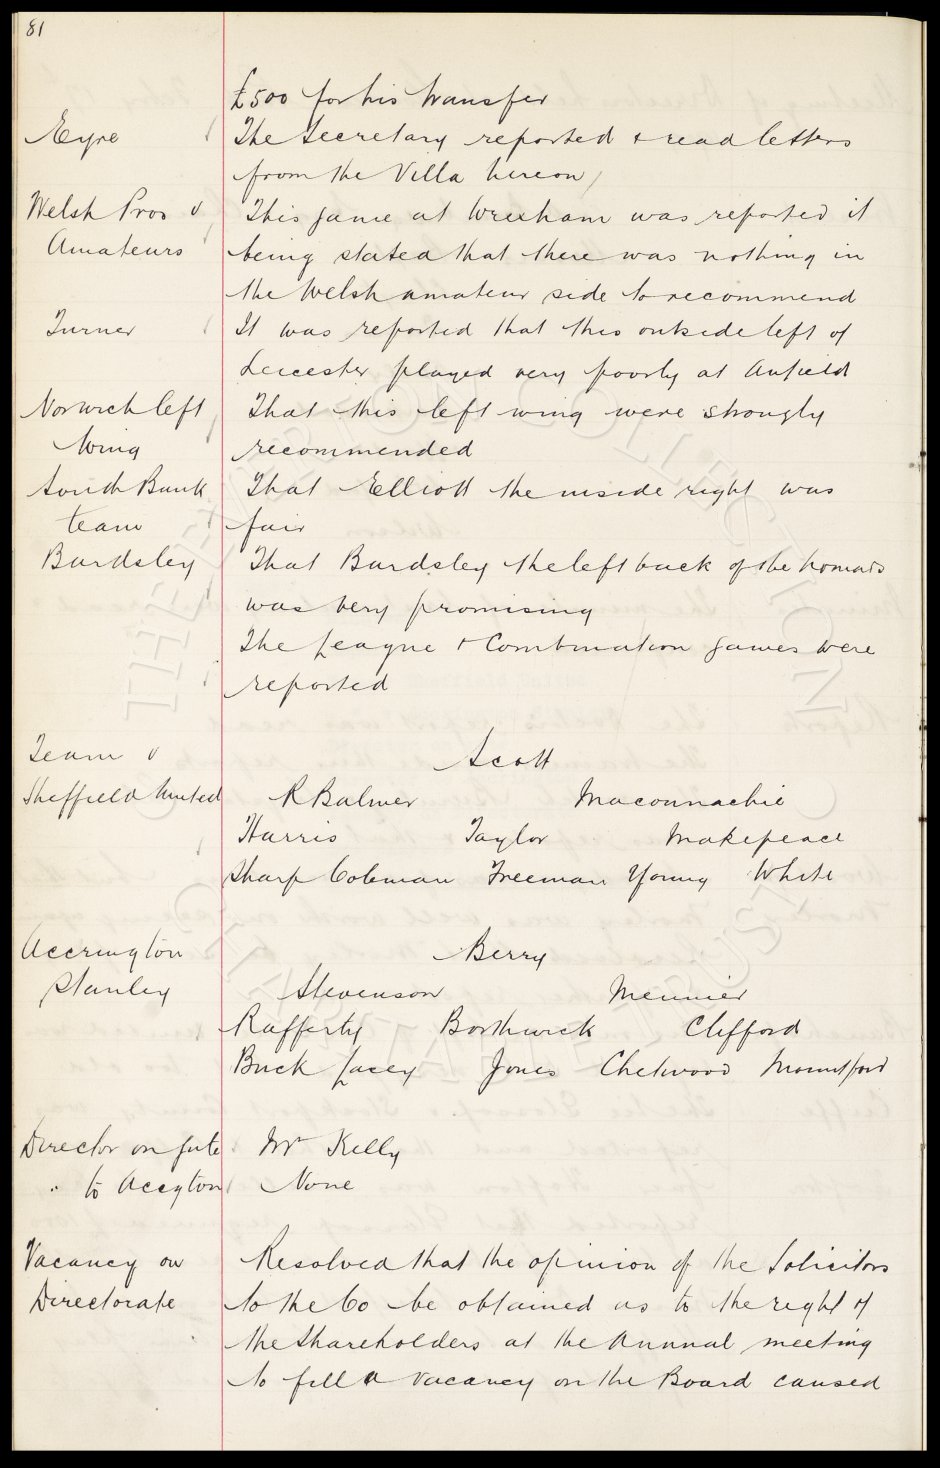 81
£500 for his transfer
Eyre The Secretary reported & read letters
from the Villa hereon
Welsh Pros v This game at Wrexham was reported it
Amateurs being stated that there was nothing in
the Welsh amateur side to recommend
Turner It was reported that this outside left of
Leicester played very poorly at Anfield
Norwich left That this left wing were strongly
Wing recommended
South Bank That Elliott the inside right was
team fair
Bardsley That Bardsley the left back of the Nomads
was very promising
The League & Combination games were
reported
Team v Scott
Sheffield United R Balmer Maconnachie
Harris Taylor Makepeace
Sharp Coleman Freeman Young White
Accrington Berry
Stanley Stevenson Meunier
Rafferty Borthwick Clifford
Buck Lacey Jones Chetwood Mountford
Director on gate Mr Kelly
" to Accgton None
Vacancy on Resolved that the opinion of the Solicitors
Directorate to the Co be obtained as to the right of
the Shareholders at the Annual meeting
to fill a vacancy on the Board caused